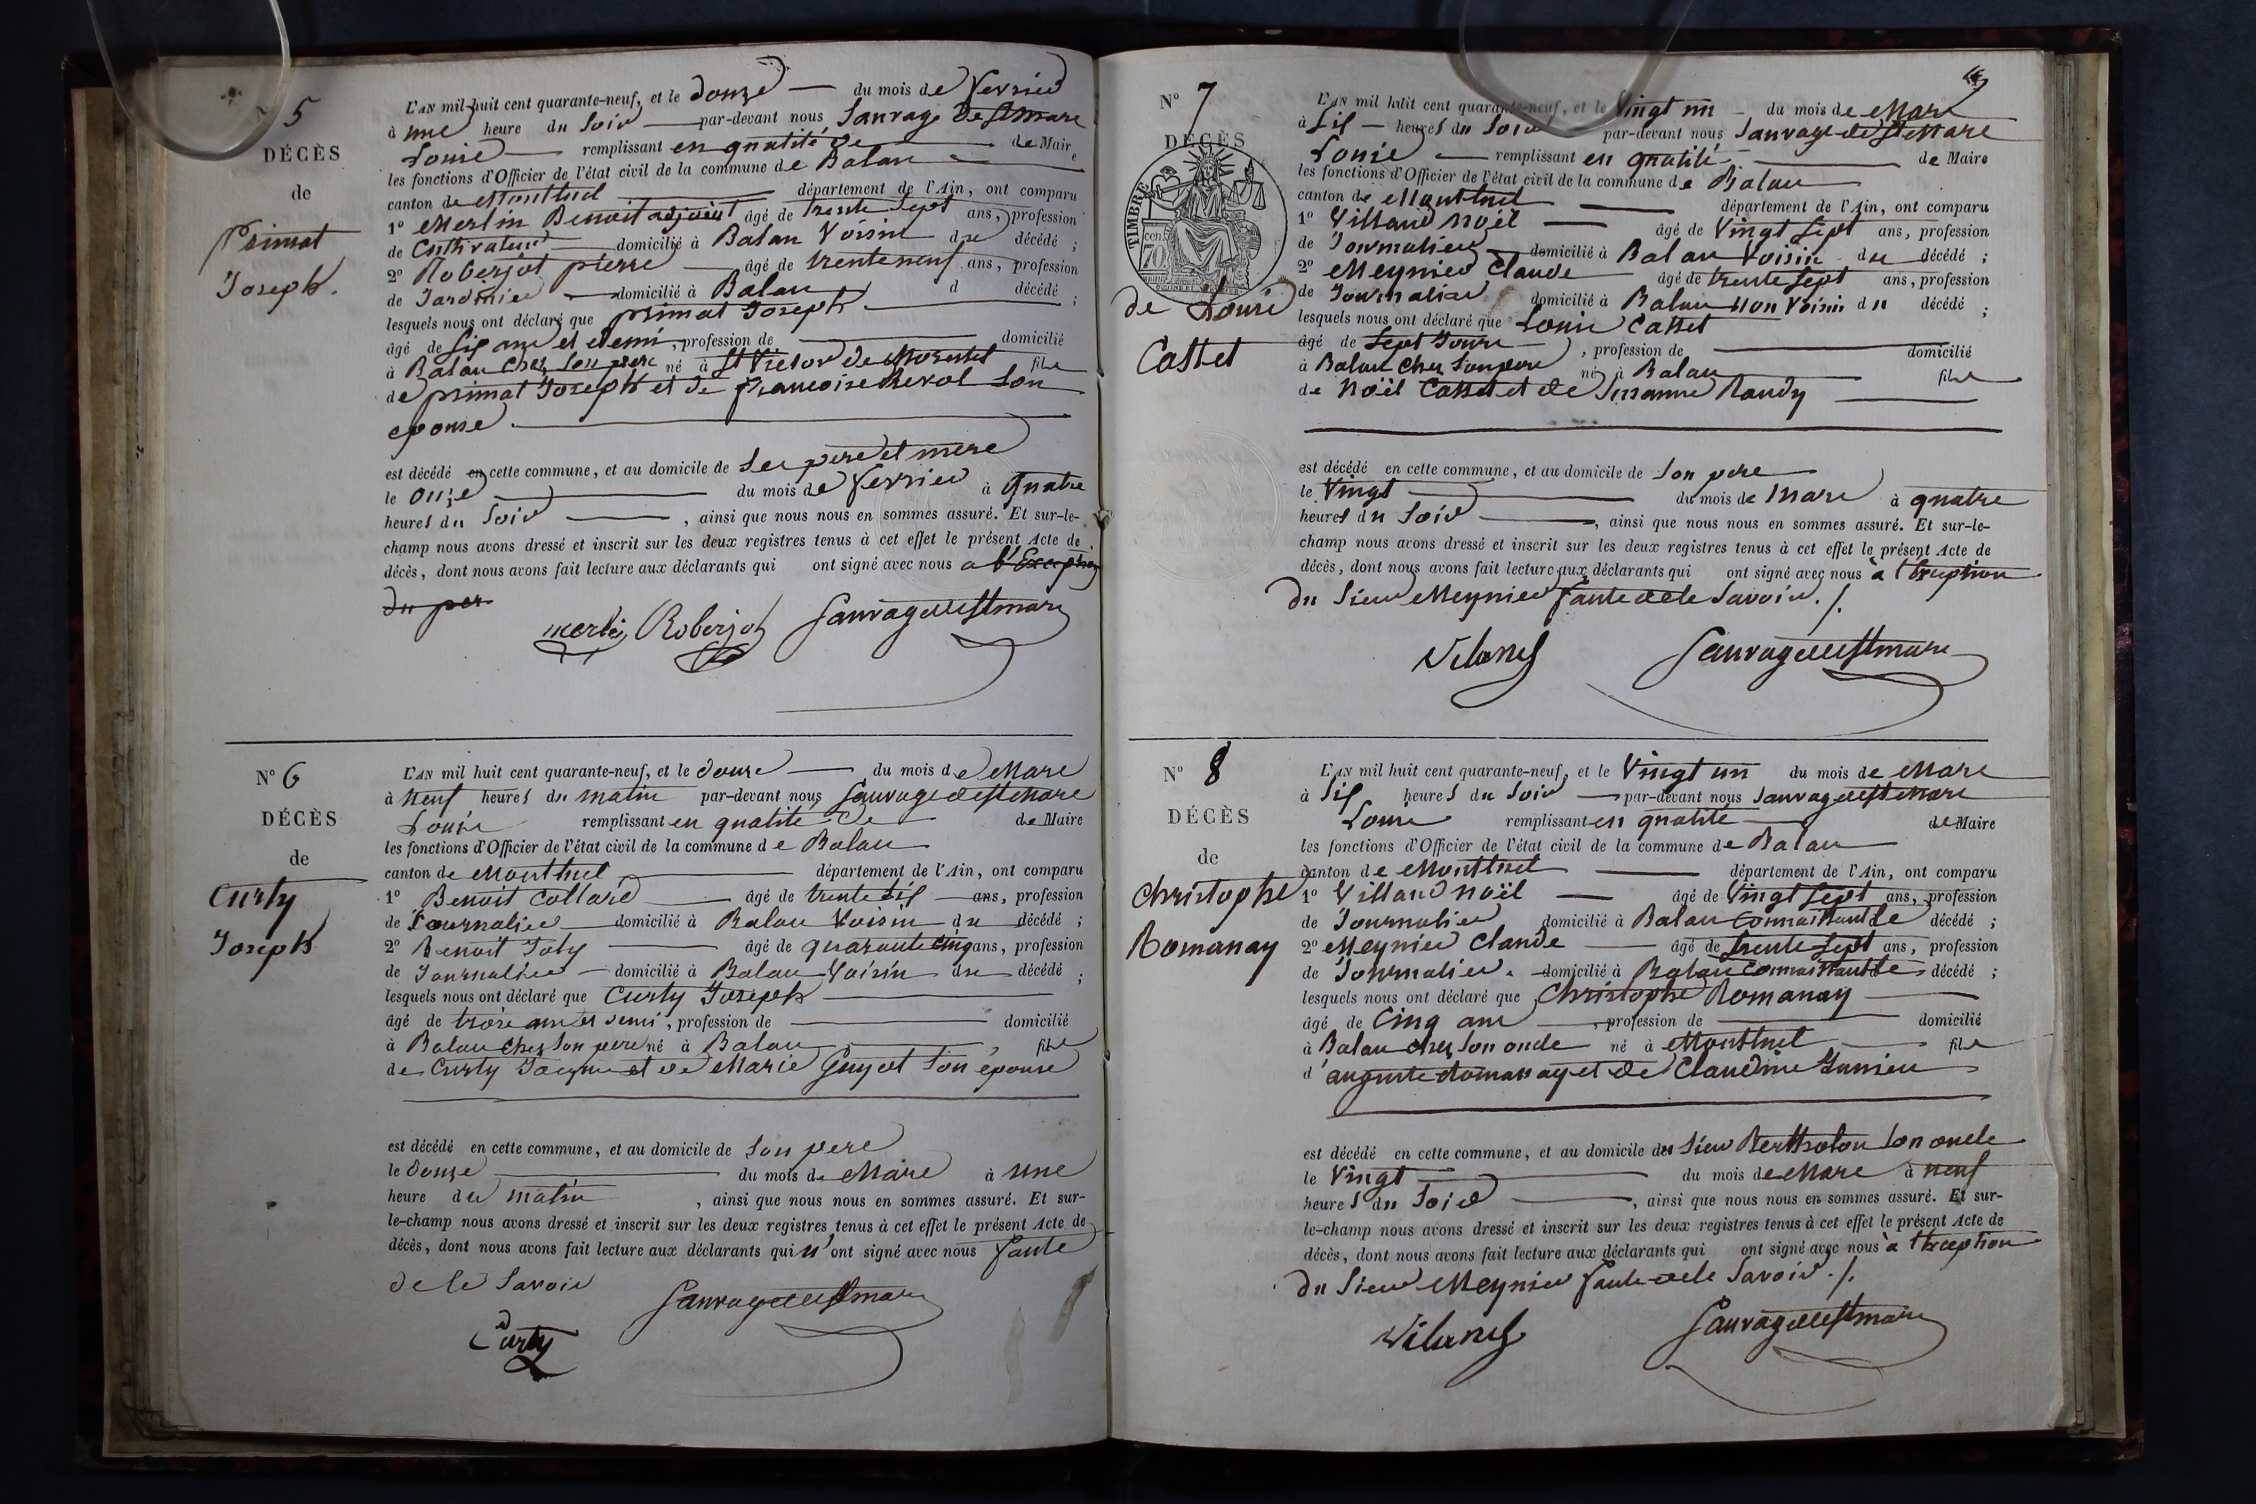 5
DÉCÈS
de
Primat
Joseph.
L'AN mil huit cent quarante-neuf, et le douze du mois de fevrier
à une heure du soir par-devant nous Sauvage de St mare
Louis remplissant en qualité de de Maire
les fonctions d'Officier de l'état civil de la commune de Balan
canton de Montluel département de l'Ain, ont comparu
1º Merlin Benoit adjoint âgé de trente sept ans, profession
de Cultivateur domicilié à Balan Voisin du décédé ;
2º Roberjot pierre âgé de trente neuf ans, profession
de Jardinier domicilié à Balan d décédé ;
lesquels nous ont déclaré que primat Joseph
âgé de six ans et demi, profession de domicilié
à Balan chez son pere né à St Victor de Morestel fils
de primat Joseph et de francoise Revol son
epouse
est décédé en cette commune, et au domicile de ses pere et mere
le onze du mois de fevrier à quatre
heures du soir , ainsi que nous nous en sommes assuré. Et sur-le-
champ nous avons dressé et inscrit sur les deux registres tenus à cet effet le présent Acte de
décès, dont nous avons fait lecture aux déclarants qui ont signé avec nous a l'Exception
du per
merlin Roberjot Sauvage de St mare
Nº 6
DÉCÈS
de
Curty
Joseph
L'AN mil huit cent quarante-neuf, et le douze du mois de Mars
à neuf heures du matin par-devant nous Sauvage de St Mare
Louis remplissant en qualité de de Maire
les fonctions d'Officier de l'état civil de la commune de Balan
canton de Montluel département de l'Ain, ont comparu
1º Benoit Collard âgé de trente six ans, profession
de Journalier domicilié à Balan Voisin du décédé ;
2º Benoit Joly âgé de quarante cinq ans, profession
de Journalier domicilié à Balan Voisin du décédé ;
lesquels nous ont déclaré que Curty Joseph
âgé de trois ans et demi, profession de domicilié
à Balan chez son pere né à Balan, fils
de Curty Jacque et de Marie Guyot son épouse
est décédé en cette commune, et au domicile de son pere
le douze du mois de Mars à une
heure du matin , ainsi que nous nous en sommes assuré. Et sur-
le-champ nous avons dressé et inscrit sur les deux registres tenus à cet effet le présent Acte de
décès, dont nous avons fait lecture aux déclarants qui n'ont signé avec nous faute
de le savoir
Sauvage de St mare
Curty
Nº 7
DÉCÈS
TIMBRE
70
de Louis
Casset
L'AN mil huit cent quarante-neuf, et le Vingt un du mois de Mars
à six heures du soir par-devant nous Sauvage de St Mare
Louis remplissant en qualité de Maire
les fonctions d'Officier de l'état civil de la commune de Balan
canton de Montluel département de l'Ain, ont comparu
1º Villand Noël âgé de Vingt sept ans, profession
de Journalier domicilié à Balan Voisin du décédé ;
2º Meynier Claude âgé de trente sept ans, profession
de Journalier domicilié à Balan non Voisin du décédé ;
lesquels nous ont déclaré que Louis Casset
âgé de sept Jours, profession de domicilié
à Balan chez son pere né à Balan fils
de Noël Casset et de Susanne Randy
est décédé en cette commune, et au domicile de son pere
le Vingt du mois de Mars à quatre
heures du soir , ainsi que nous nous en sommes assuré. Et sur-le-
champ nous avons dressé et inscrit sur les deux registres tenus à cet effet le présent Acte de
décès, dont nous avons fait lecture aux déclarants qui ont signé avec nous à l'Exception
du sieur Meynier faute de le savoir./.
Sauvage de St mare
Nº 8
DÉCÈS
de
Christophe
Romanay
L'AN mil huit cent quarante-neuf, et le Vingt un du mois de Mars
à six heures du soir par-devant nous Sauvage de St Mare
Louis remplissant en qualité de Maire
les fonctions d'Officier de l'état civil de la commune de Balan
canton de Montluel département de l'Ain, ont comparu
1º Villand Noël âgé de Vingt sept ans, profession
de Journalier domicilié à Balan connaissant le décédé ;
2º Meynier Claude âgé de trente sept ans, profession
de Journalier. domicilié à Balan connaissant le décédé ;
lesquels nous ont déclaré que Christophe Romanay
âgé de Cinq ans, profession de domicilié
à Balan chez son oncle né à Montluel fils
d'auguste Romanay et de Claudine Junieu
est décédé en cette commune, et au domicile du sieur Bertholon son oncle
le Vingt du mois de Mars à neuf
heures du soir , ainsi que nous nous en sommes assuré. Et sur-
le-champ nous avons dressé et inscrit sur les deux registres tenus à cet effet le présent Acte de
décès, dont nous avons fait lecture aux déclarants qui ont signé avec nous à l'Exception
du sieur Meynier faute de le savoir./.
Sauvage de St mare